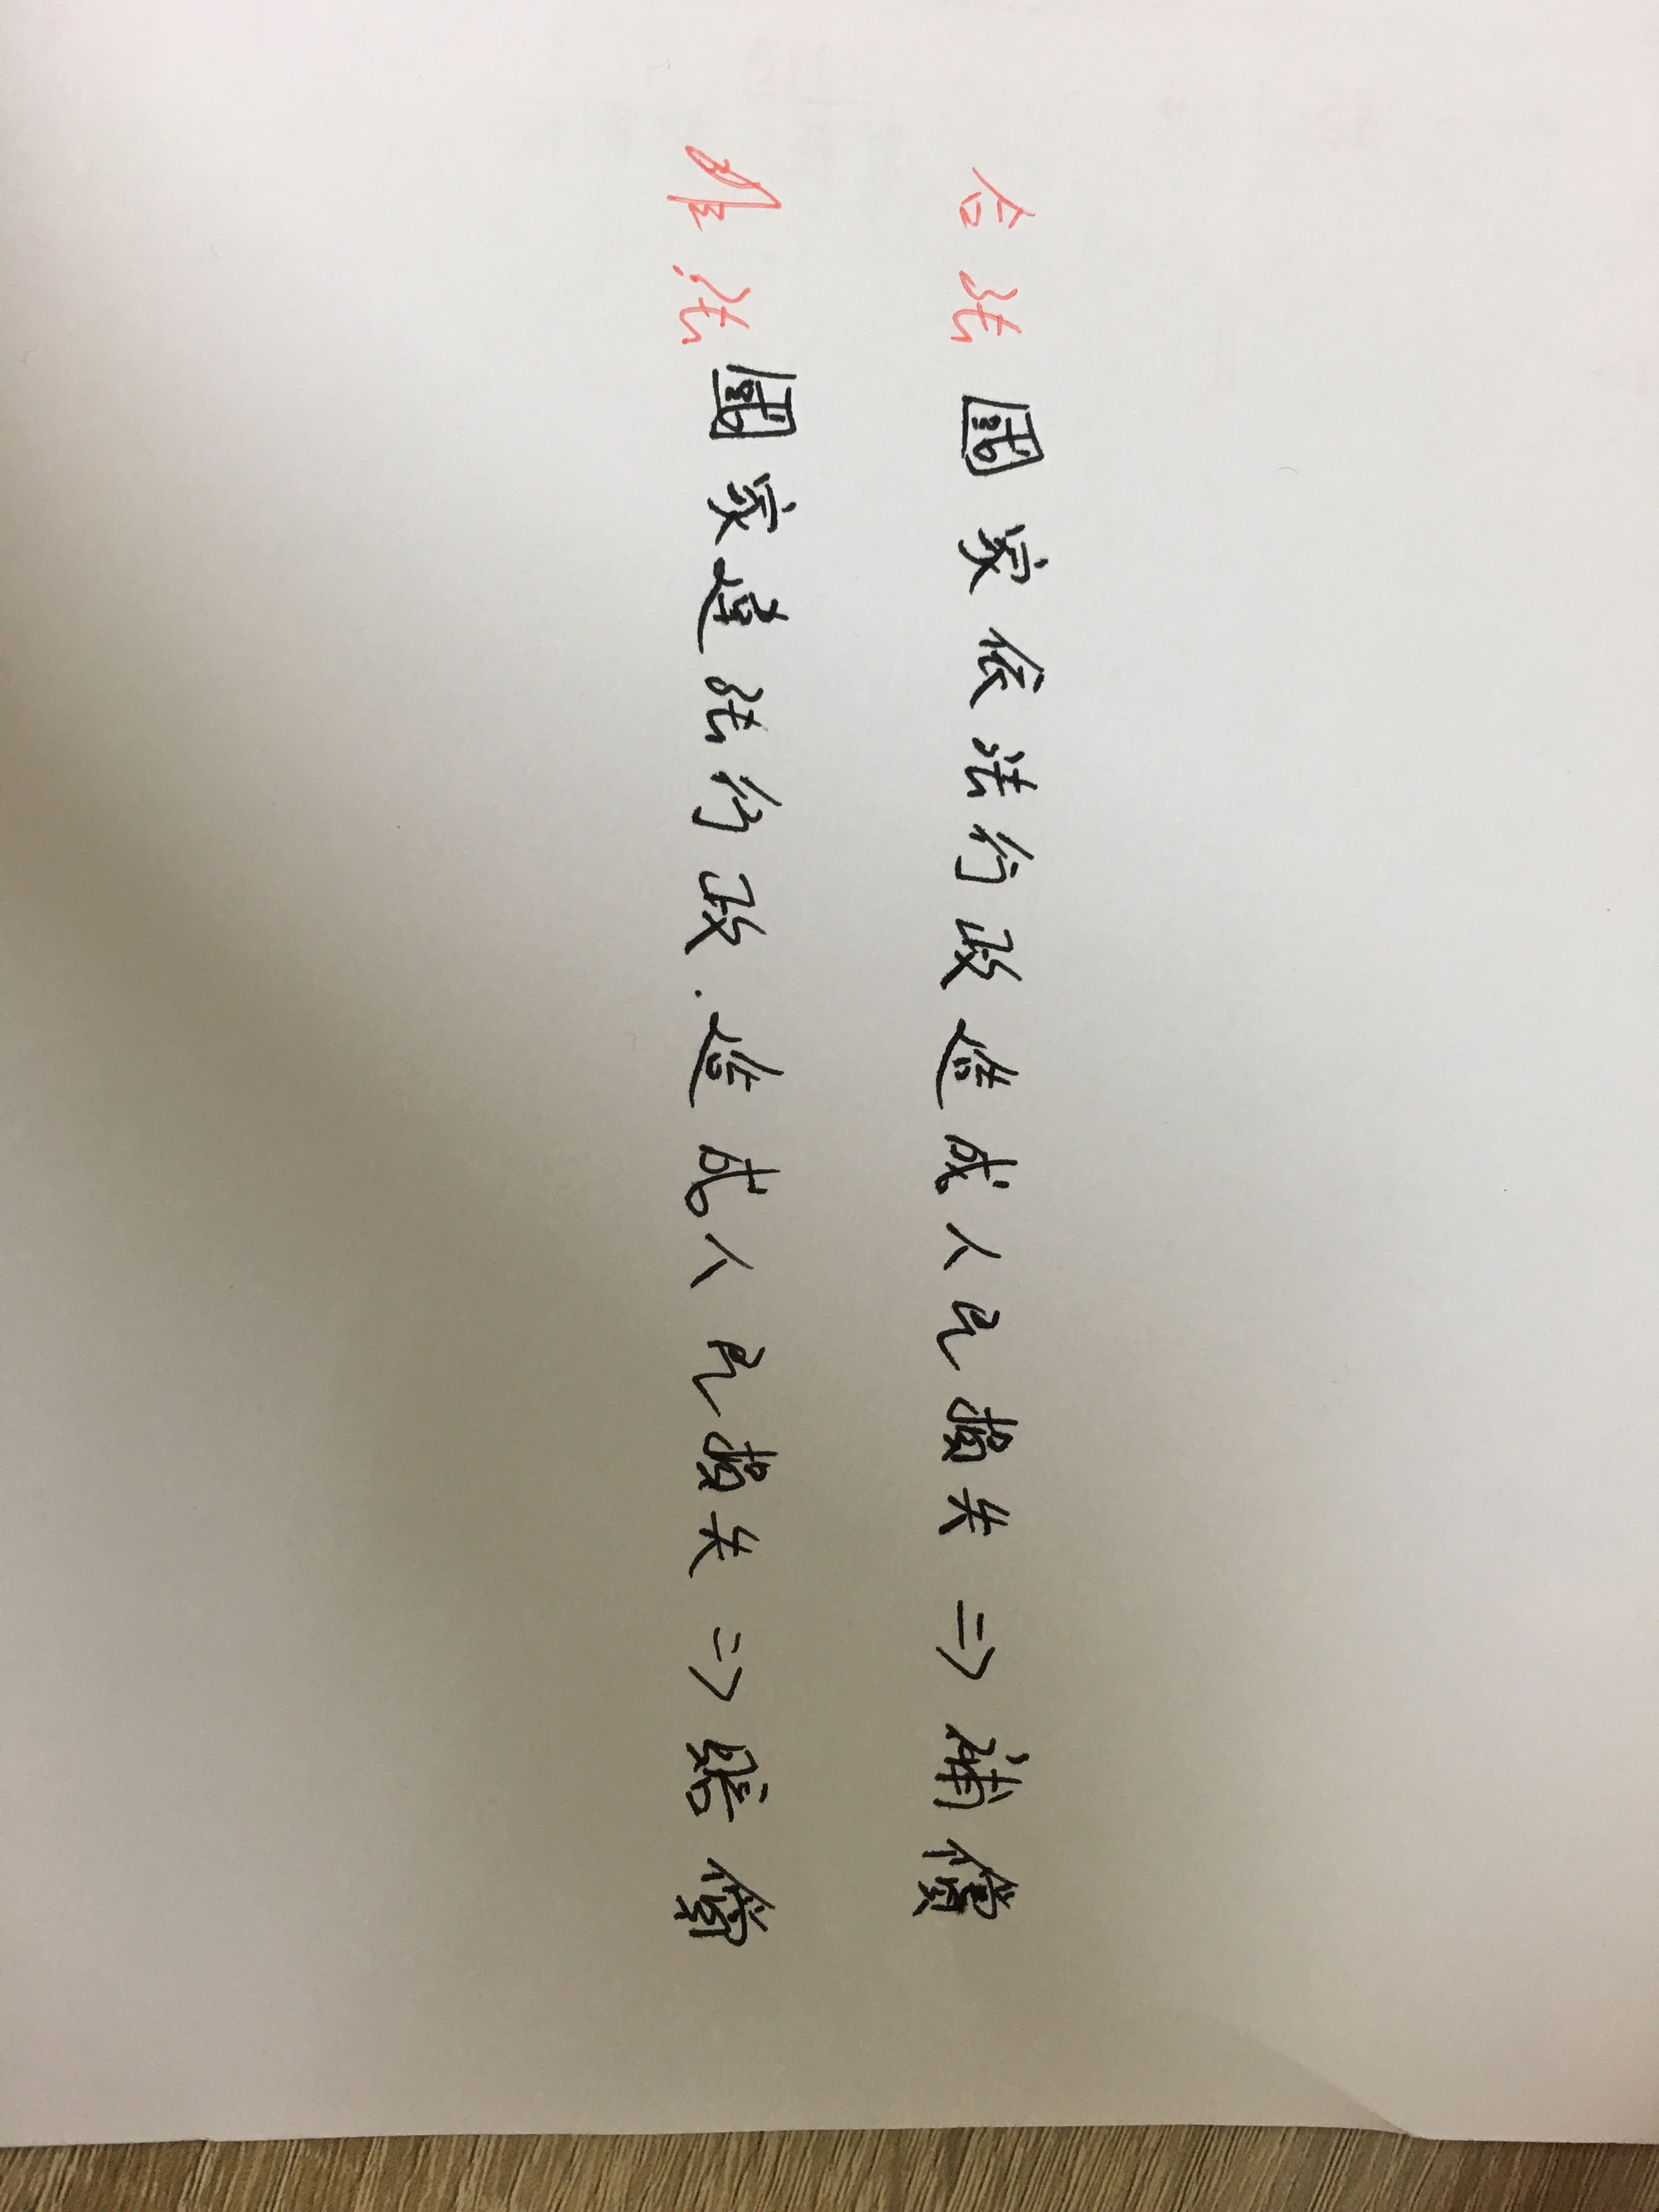 合法 國家依法行政造成人民損失 => 補償
非法 國家違法行政.造成人民損失 => 賠償